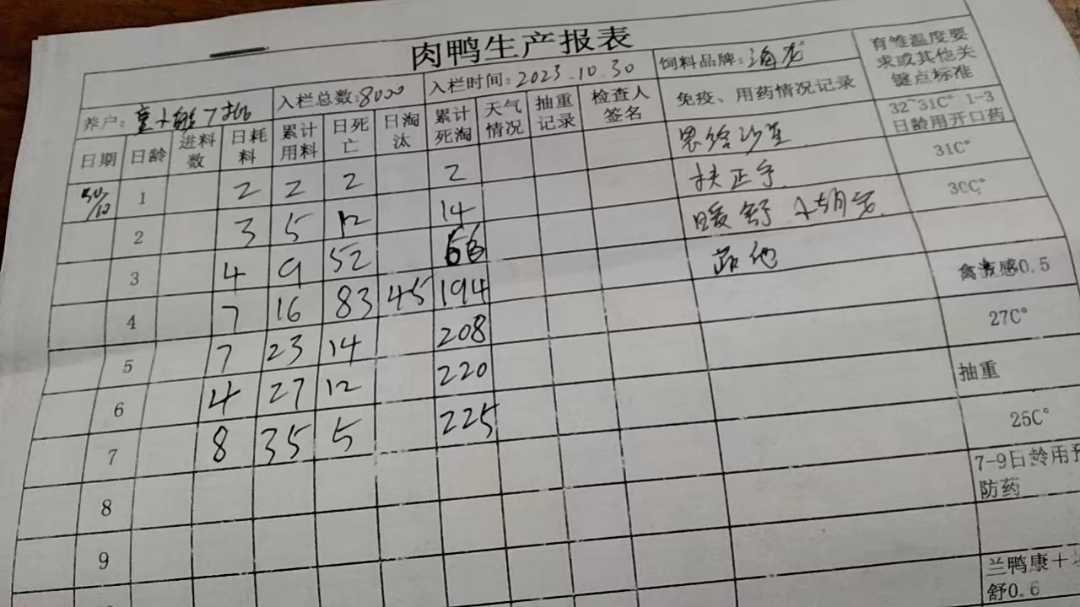 肉鸭生产报表
养户: 入栏总数:8000 入栏时间:2023.10.30 饲料品牌:海 育雏温度要求或其他关键点标准
日期 日龄 进料数 日耗料 累计用料 日死亡 日淘汰 累计死淘 天气情况 抽重记录 检查人签名 免疫、用药情况记录 32~31C° 1-3日龄用开口药
30/10 1 2 2 2 2 恩给沙星 31C°
2 3 5 12 14 扶正 30C°
3 4 9 52 66 暖舒
4 7 16 83 45 194 禽流感0.5
5 7 23 14 208 27C°
6 4 27 12 220 抽重
7 8 35 5 225 25C°
8 7-9日龄用预防药
9
兰鸭康+
舒0.6